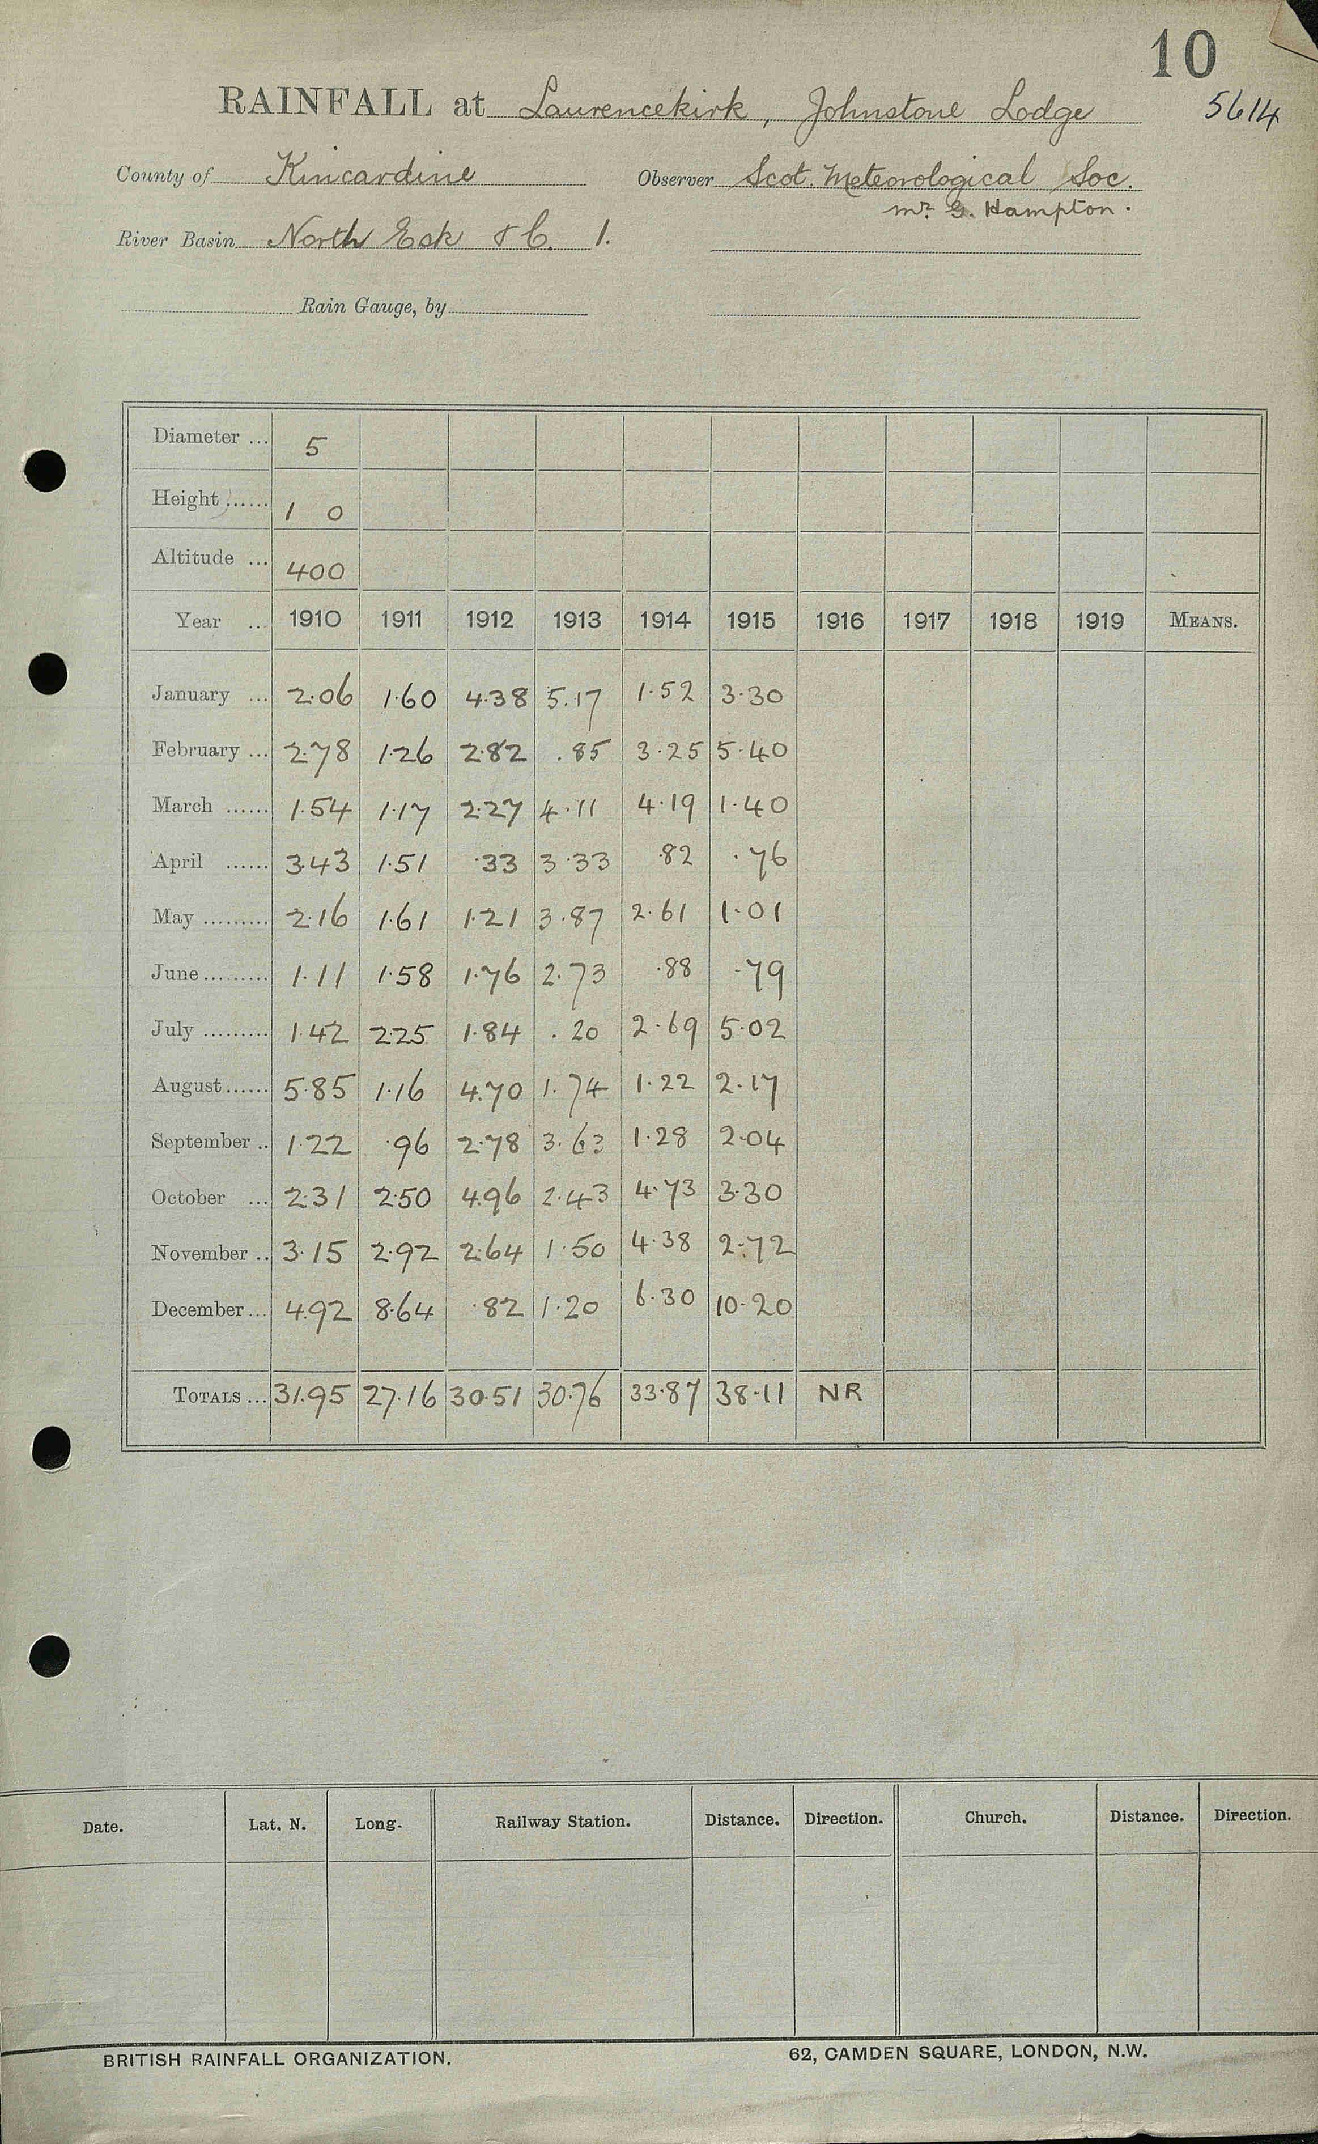 10
RAINFALL at Laurencekirk, Johnstone Lodge 5614
County of Kincardine Observer Scot. Meteorological Soc.
Mr. G. Hampton.
River Basin North Esk &c. 1.
Rain Gauge, by
Diameter ... 5
Height ...... 1 0
Altitude ... 400
Year ... 1910 1911 1912 1913 1914 1915 1916 1917 1918 1919 MEANS.
January ... 2.06 1.60 4.38 5.17 1.52 3.30
February ... 2.78 1.26 2.82 .85 3.25 5.40
March ...... 1.54 1.17 2.27 4.11 4.19 1.40
April ...... 3.43 1.51 .33 3.33 .82 .76
May ......... 2.16 1.61 1.21 3.87 2.61 1.01
June ......... 1.11 1.58 1.76 2.73 .88 .79
July ......... 1.42 2.25 1.84 .20 2.69 5.02
August ...... 5.85 1.16 4.70 1.74 1.22 2.17
September .. 1.22 .96 2.78 3.63 1.28 2.04
October ... 2.31 2.50 4.96 2.43 4.73 3.30
November .. 3.15 2.92 2.64 1.50 4.38 2.72
December ... 4.92 8.64 .82 1.20 6.30 10.20
TOTALS ... 31.95 27.16 30.51 30.76 33.87 38.11 NR
Date. Lat. N. Long. Railway Station. Distance. Direction. Church. Distance. Direction.
BRITISH RAINFALL ORGANIZATION. 62, CAMDEN SQUARE, LONDON, N.W.